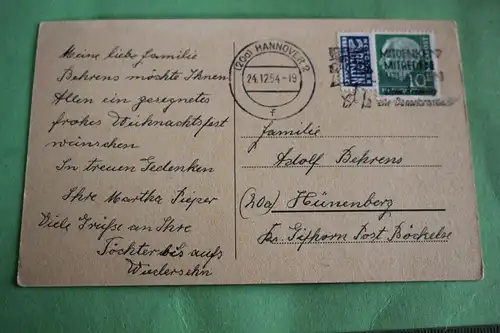 Meine liebe Familie
Behrens möchte Ihnen
Allen ein gesegnetes
frohes Weihnachtsfest
wünschen
In treuen Gedenken
Ihre Martha Pieper
Viele Grüße an Ihre
Töchter bis aufs
Wiedersehn
(20a) HANNOVER 2
24.12.54.-19
f
NOTOPFER
BERLIN
2
10
Familie
Adolf Behrens
(20a) Hünenberg
Kr. Gifhorn Post Böckelse